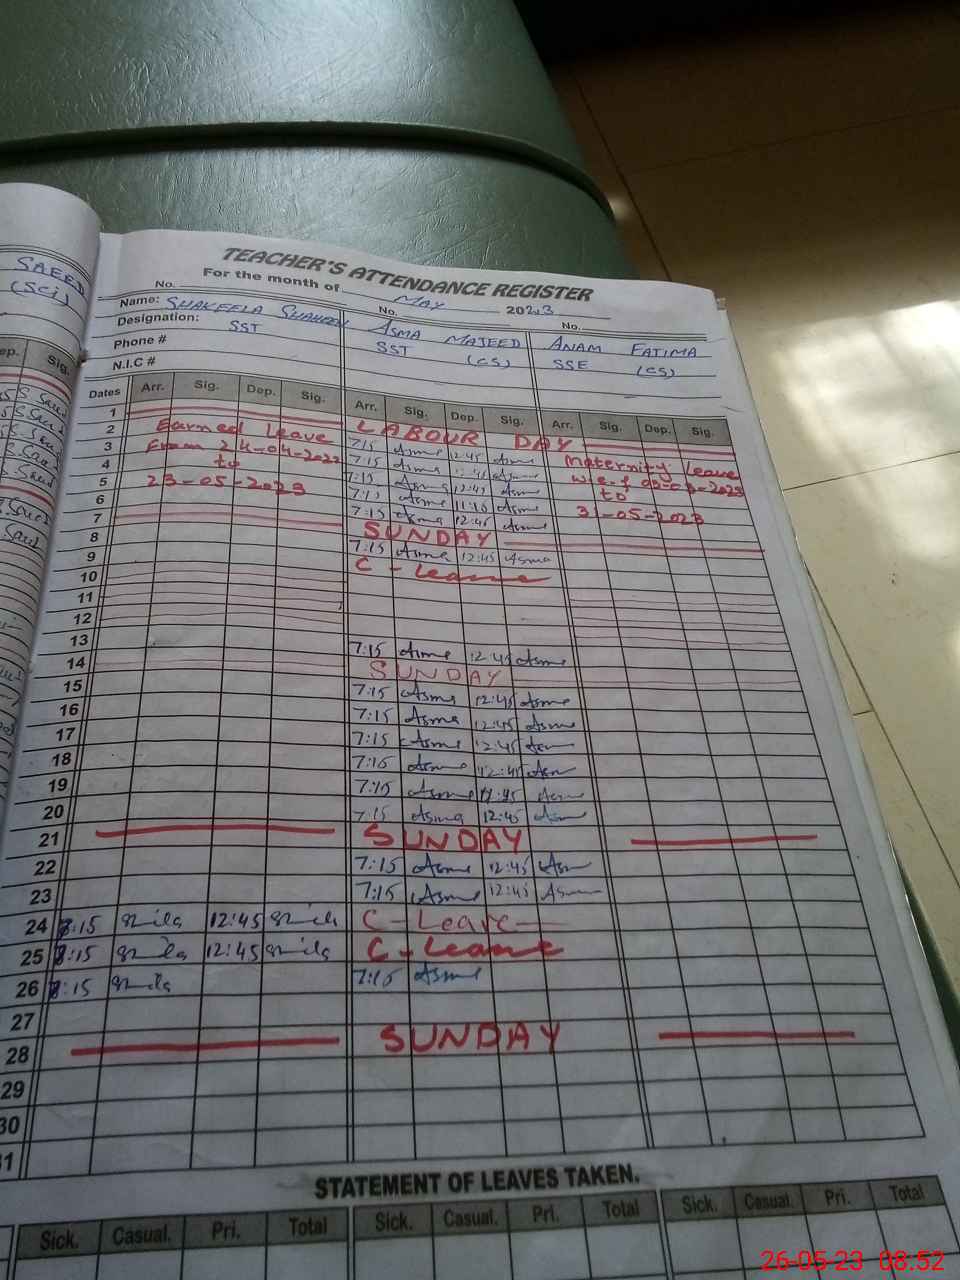 SAEED
(Sci)
TEACHER'S ATTENDANCE REGISTER
For the month of MAY 2023
No. No. No.
Name: SHAKEELA SHAHEEN ASMA MAJEED ANAM FATIMA
Designation: SST SST (CS) SSE (CS)
Phone #
N.I.C #
Dates Arr. Sig. Dep. Sig. Arr. Sig. Dep. Sig. Arr. Sig. Dep. Sig.
1 LABOUR DAY
2 Earned Leave 7:15 Asma 12:45 Asma Maternity Leave
3 From 24-04-2022 7:15 Asma 12:45 Asma w.e.f 03-03-2023
4 to 7:15 Asma 12:45 Asma to
5 23-05-2023 7:15 Asma 11:10 Asma 31-05-2023
6 7:15 Asma 12:45 Asma
7 SUNDAY
8 7:15 Asma 12:45 Asma
9 C-Leave
10
11
12
13 7:15 Asma 12:45 Asma
14 SUNDAY
15 7:15 Asma 12:45 Asma
16 7:15 Asma 12:45 Asma
17 7:15 Asma 12:45 Asma
18 7:15 Asma 12:45 Asm
19 7:15 Asma 12:45 Asm
20 7:15 Asma 12:45 Asm
21 SUNDAY
22 7:15 Asma 12:45 Asm
23 7:15 Asma 12:45 Asm
24 :15 12:45 C-Leave
25 :15 12:45 C-Leave
26 :15 7:15 Asma
27
28 SUNDAY
29
30
31
STATEMENT OF LEAVES TAKEN.
Sick. Casual. Pri. Total Sick. Casual. Pri. Total Sick. Casual. Pri. Total
26-05-23 08:52